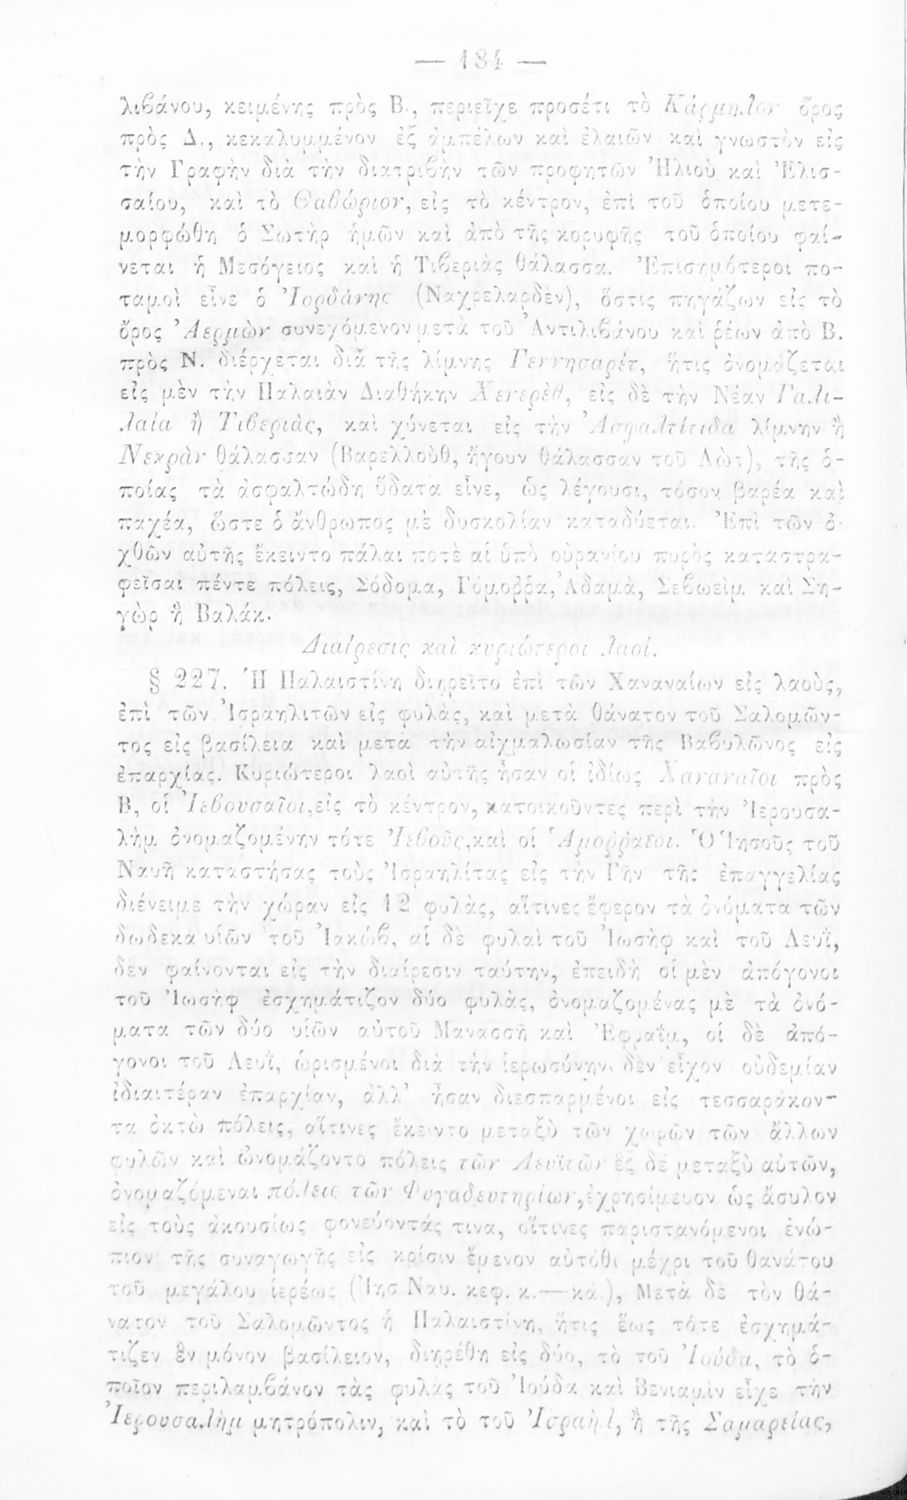 — 184 —
λιβάνου, κειμένης πρὸς Β., περιεῖχε προσέτι τὸ Κάρμηλον ὄρος
πρὸς Δ., κεκαλυμμένον ἐξ ἀμπέλων καὶ ἐλαιῶν καὶ γνωστὸν εἰς
τὴν Γραφὴν διὰ τὴν διατριβὴν τῶν προφητῶν Ἠλιοὺ καὶ Ἐλισ-
σαίου, καὶ τὸ Θαβώριον, εἰς τὸ κέντρον, ἐπὶ τοῦ ὁποίου μετε-
μορφώθη ὁ Σωτὴρ ἡμῶν καὶ ἀπὸ τῆς κορυφῆς τοῦ ὁποίου φαί-
νεται ἡ Μεσόγειος καὶ ἡ Τιβεριὰς θάλασσα. Ἐπισημότεροι πο-
ταμοὶ εἶνε ὁ Ἰορδάνης (Ναχρελαρδὲν), ὅστις πηγάζων εἰς τὸ
ὄρος Ἀερμὼν συνεχόμενον μετὰ τοῦ Ἀντιλιβάνου καὶ ῥέων ἀπὸ Β.
πρὸς Ν. διέρχεται διὰ τῆς λίμνης Γεννησαρέτ, ἥτις ὀνομάζεται
εἰς μὲν τὴν Παλαιὰν Διαθήκην Χενερὲθ, εἰς δὲ τὴν Νέαν Γαλι-
λαία ἢ Τιβεριὰς, καὶ χύνεται εἰς τὴν Ἀσφαλτίτιδα λίμνην ἢ
Νεκρὰν θάλασσαν (Βαρελλοὺθ, ἤγουν θάλασσαν τοῦ Λὼτ), τῆς ὁ-
ποίας τὰ ἀσφαλτώδη ὕδατα εἶνε, ὡς λέγουσι, τόσον βαρέα καὶ
παχέα, ὥστε ὁ ἄνθρωπος μὲ δυσκολίαν καταδύεται. Ἐπὶ τῶν ὀ-
χθῶν αὐτῆς ἔκειντο πάλαι ποτὲ αἱ ὑπὸ οὐρανίου πυρὸς καταστρα-
φεῖσαι πέντε πόλεις, Σόδομα, Γόμοῤῥα, Ἀδαμὰ, Σεβωεὶμ καὶ Ση-
γὼρ ἢ Βαλάκ.
Διαίρεσις καὶ κυριώτεροι λαοί.
§ 227. Ἡ Παλαιστίνη διῃρεῖτο ἐπὶ τῶν Χαναναίων εἰς λαοὺς,
ἐπὶ τῶν Ἰσραηλιτῶν εἰς φυλὰς, καὶ μετὰ θάνατον τοῦ Σαλομῶν-
τος εἰς βασίλεια καὶ μετὰ τὴν αἰχμαλωσίαν τῆς Βαβυλῶνος εἰς
ἐπαρχίας. Κυριώτεροι λαοὶ αὐτῆς ἦσαν οἱ ἰδίως Χαναναῖοι πρὸς
Β, οἱ Ἰεβουσαῖοι, εἰς τὸ κέντρον, κατοικοῦντες περὶ τὴν Ἱερουσα-
λὴμ ὀνομαζομένην τότε Ἰεβοῦς, καὶ οἱ Ἀμοῤῥαῖοι. Ὁ Ἰησοῦς τοῦ
Ναυῆ καταστήσας τοὺς Ἰσραηλίτας εἰς τὴν Γῆν τῆς ἐπαγγελίας
διένειμε τὴν χώραν εἰς 12 φυλὰς, αἵτινες ἔφερον τὰ ὀνόματα τῶν
δώδεκα υἱῶν τοῦ Ἰακὼβ, αἱ δὲ φυλαὶ τοῦ Ἰωσὴφ καὶ τοῦ Λευῒ,
δὲν φαίνονται εἰς τὴν διαίρεσιν ταύτην, ἐπειδὴ οἱ μὲν ἀπόγονοι
τοῦ Ἰωσὴφ ἐσχημάτιζον δύο φυλὰς, ὀνομαζομένας μὲ τὰ ὀνό-
ματα τῶν δύο υἱῶν αὐτοῦ Μανασσῆ καὶ Ἐφραῒμ, οἱ δὲ ἀπό-
γονοι τοῦ Λευῒ, ὡρισμένοι διὰ τὴν ἱερωσύνην, δὲν εἶχον οὐδεμίαν
ἰδιαιτέραν ἐπαρχίαν, ἀλλ' ἦσαν διεσπαρμένοι εἰς τεσσαράκον-
τα ὀκτὼ πόλεις, αἵτινες ἔκειντο μεταξὺ τῶν χωρῶν τῶν ἄλλων
φυλῶν καὶ ὠνομάζοντο πόλεις τῶν Λευϊτῶν ἓξ δὲ μεταξὺ αὐτῶν,
ὀνομαζόμεναι πόλεις τῶν Φυγαδευτηρίων, ἐχρησίμευον ὡς ἄσυλον
εἰς τοὺς ἀκουσίως φονεύοντάς τινα, οἵτινες παριστανόμενοι ἐνώ-
πιον τῆς συναγωγῆς εἰς κρίσιν ἔμενον αὐτόθι μέχρι τοῦ θανάτου
τοῦ μεγάλου ἱερέως (Ἰησ Ναυ. κεφ. κ.—κα.), Μετὰ δὲ τὸν θά-
νατον τοῦ Σαλομῶντος ἡ Παλαιστίνη, ἥτις ἕως τότε ἐσχημά-
τιζεν ἓν μόνον βασίλειον, διῃρέθη εἰς δύο, τὸ τοῦ Ἰούδα, τὸ ὁ-
ποῖον περιλαμβάνον τὰς φυλὰς τοῦ Ἰούδα καὶ Βενιαμὶν εἶχε τὴν
Ἱερουσαλὴμ μητρόπολιν, καὶ τὸ τοῦ Ἰσραὴλ, ἢ τῆς Σαμαρείας,